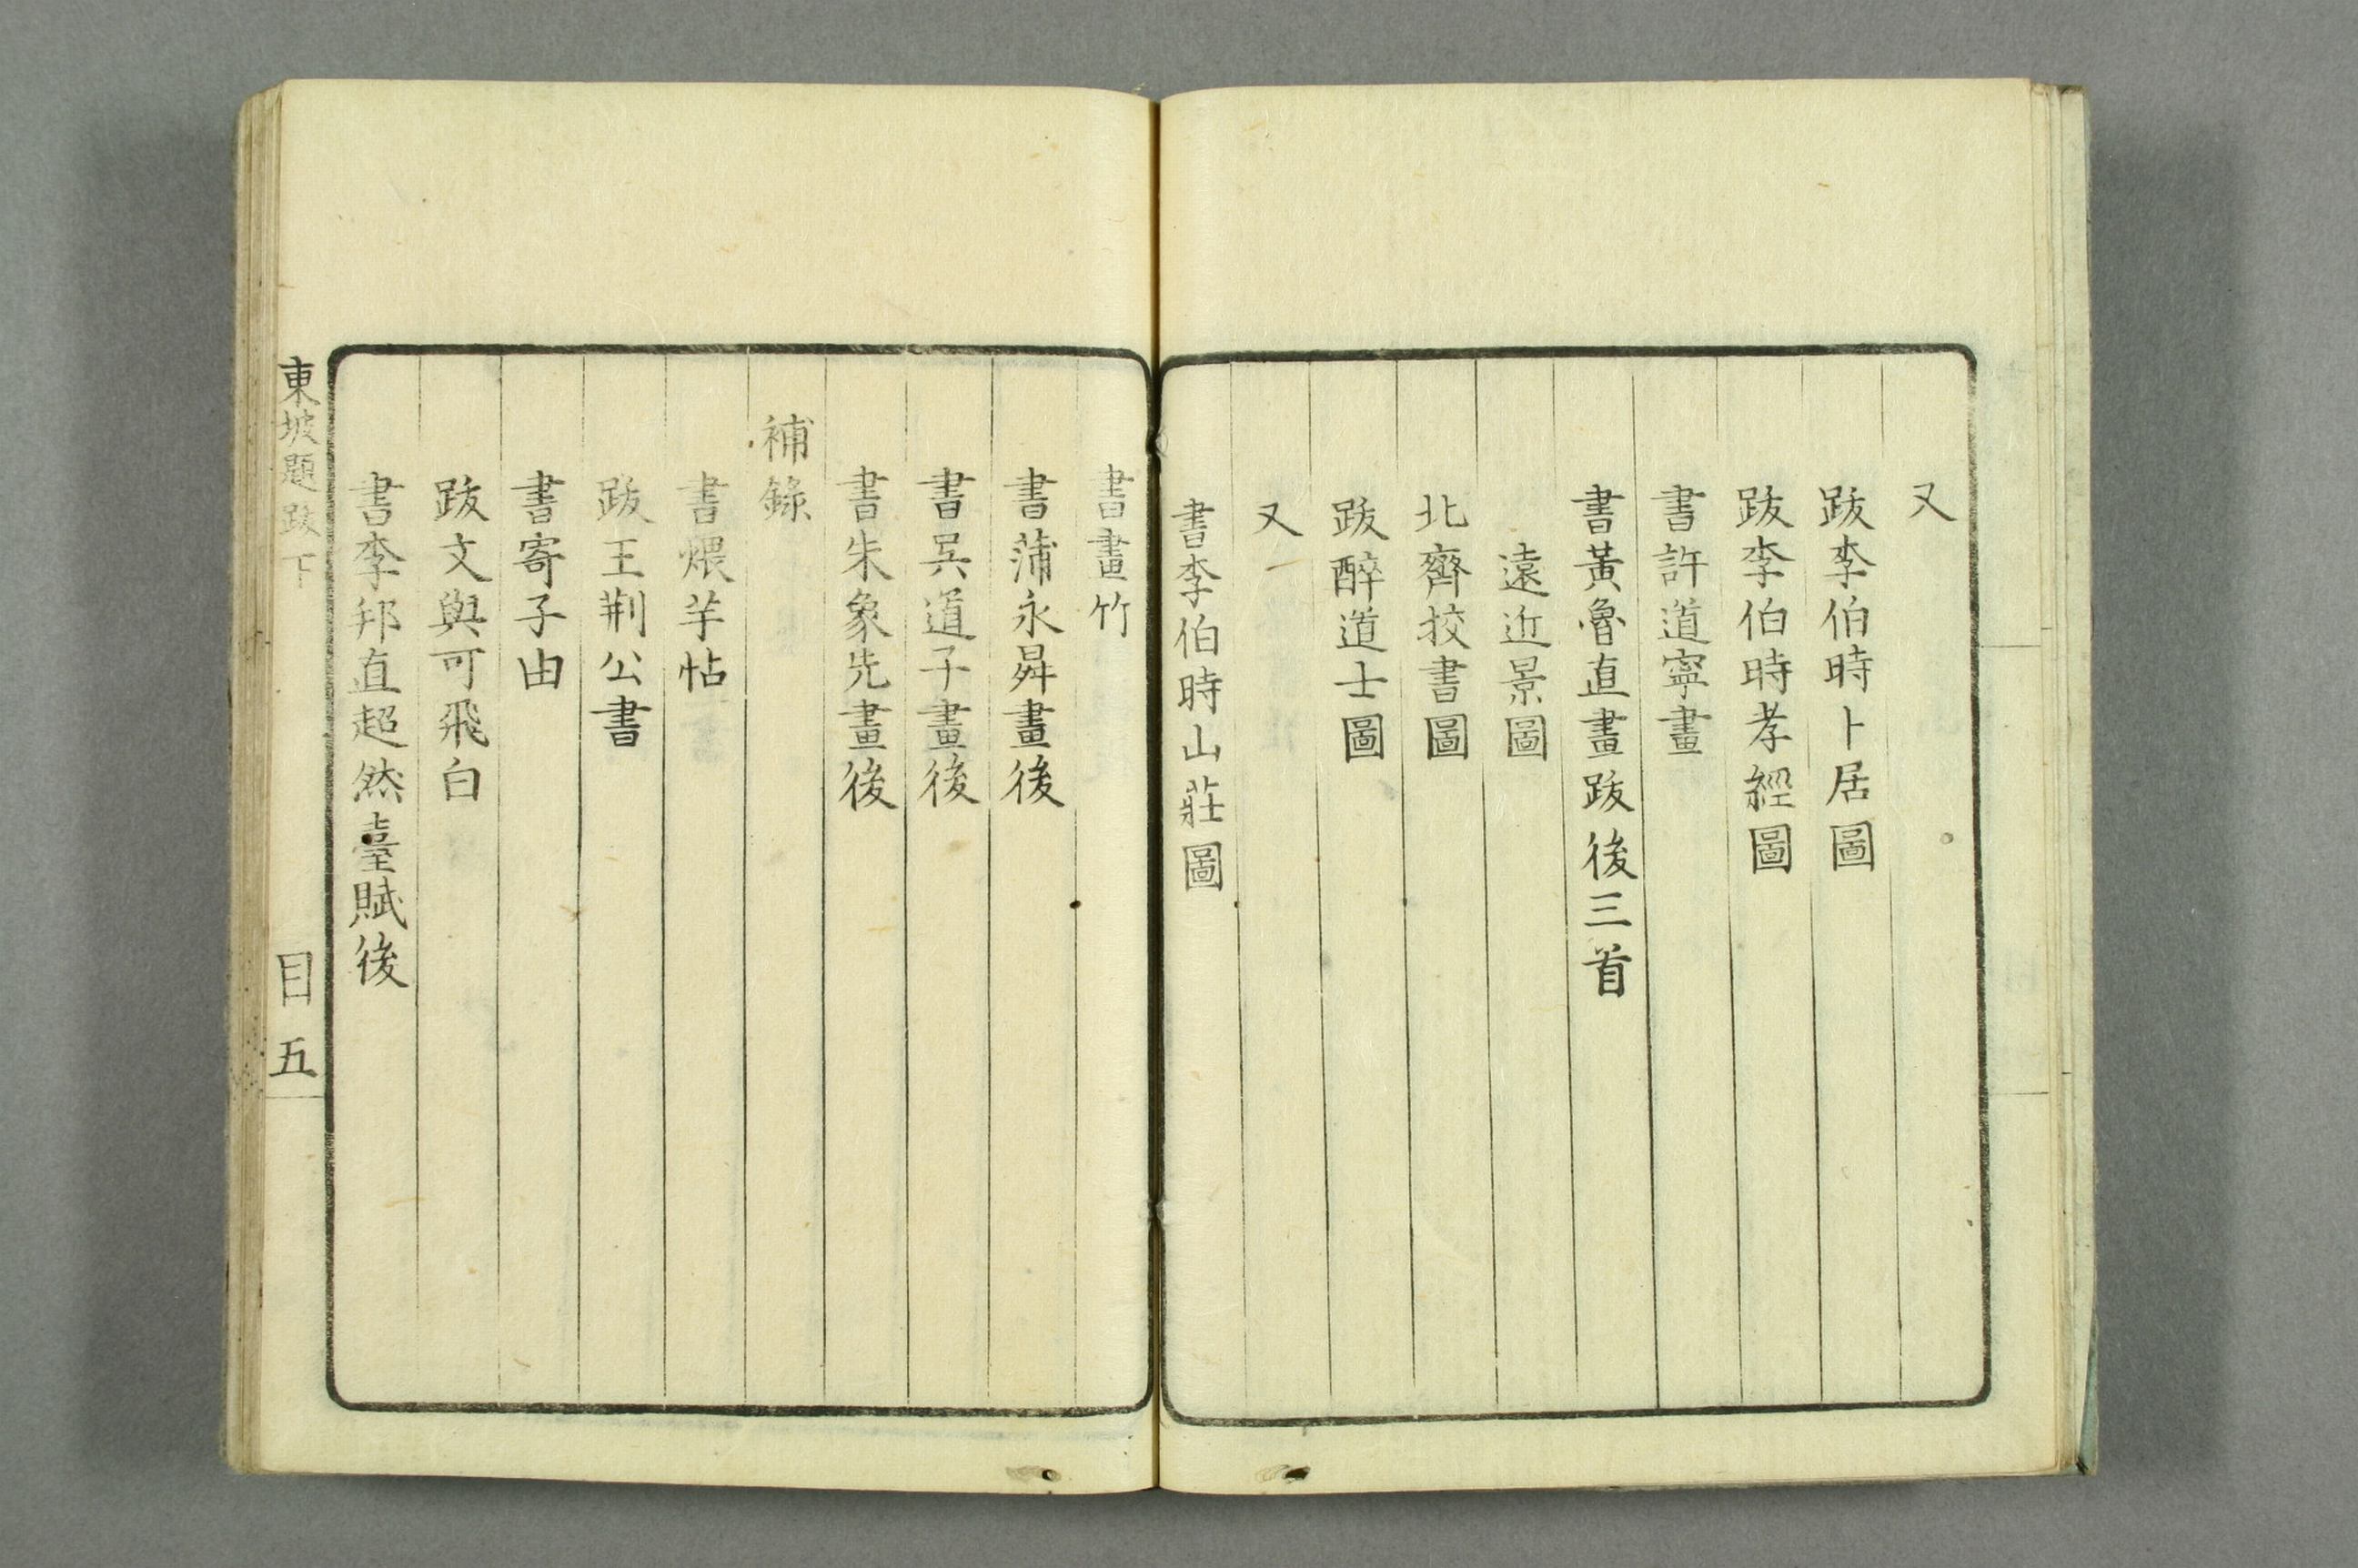 又
跋李伯時卜居圖
跋李伯時孝經圖
書許道寧畫
書黃魯直畫跋後三首
遠近景圖
北齊挍書圖
跋醉道士圖
又
書李伯時山莊圖
書畫竹
書蒲永昇畫後
書吳道子畫後
書朱象先畫後
補錄
書煨羊帖
跋王荆公書
書寄子由
跋文與可飛白
書李邦直超然臺賦後
東坡題跋下 目 五